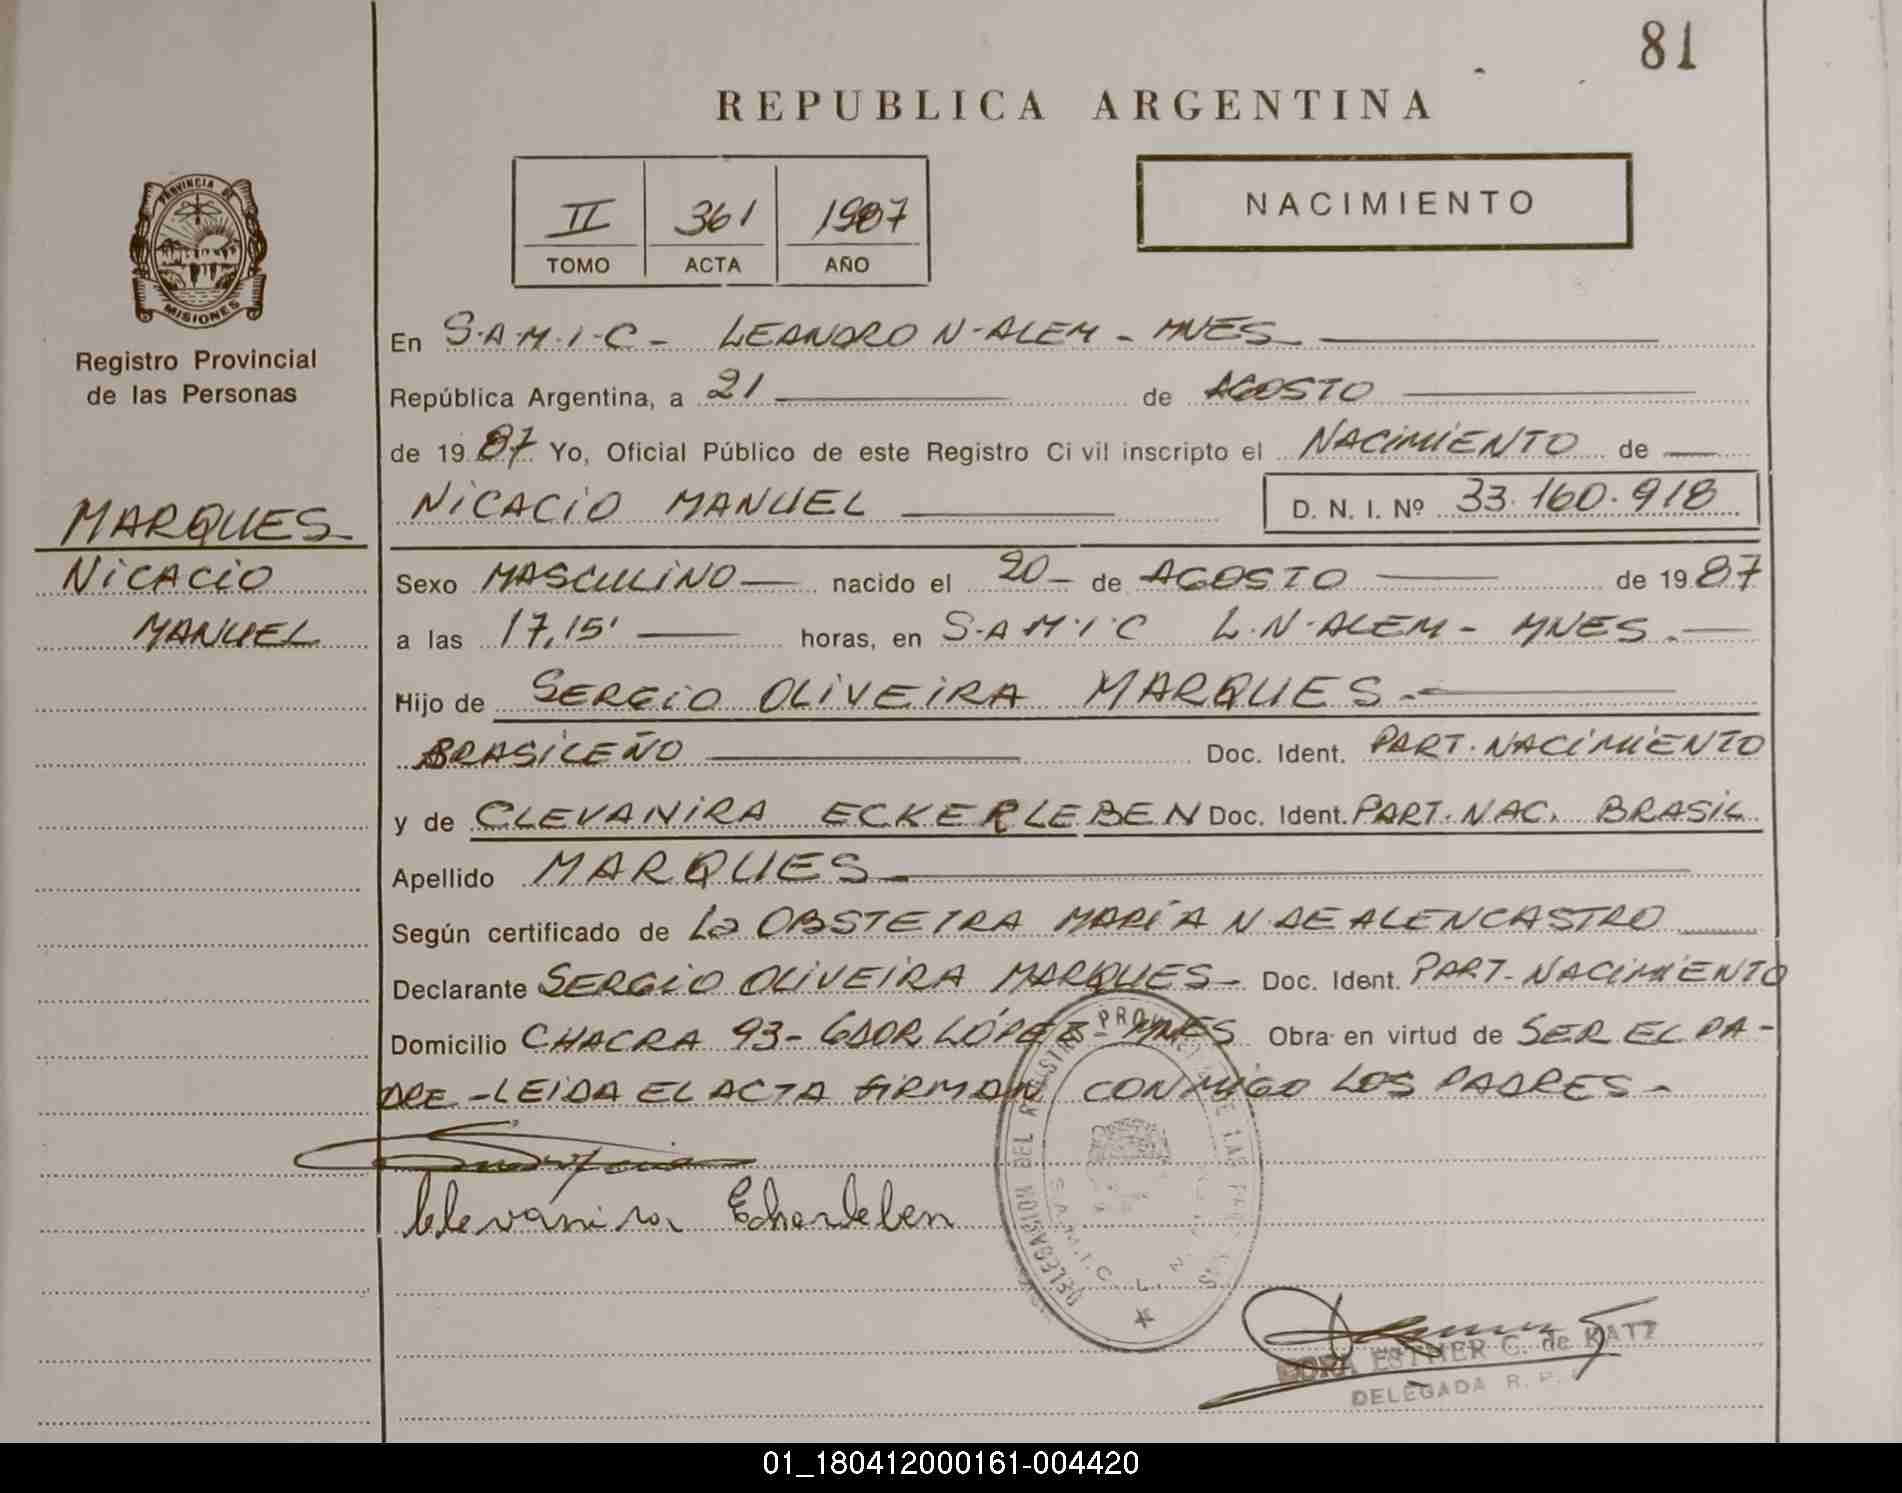 81
REPUBLICA ARGENTINA
II 361 1987
TOMO ACTA AÑO
NACIMIENTO
PROVINCIA DE
MISIONES
Registro Provincial
de las Personas
MARQUES
NICACIO
MANUEL
En S.A.M.I.C - LEANDRO N. ALEM - MNES
República Argentina, a 21 de AGOSTO
de 1987 Yo, Oficial Público de este Registro Civil inscripto el NACIMIENTO de
NICACIO MANUEL D. N. I. Nº 33.160.918
Sexo MASCULINO nacido el 20 de AGOSTO de 1987
a las 17,15' horas, en S.A.M.I.C L.N.ALEM - MNES.
Hijo de SERGIO OLIVEIRA MARQUES.
BRASILEÑO Doc. Ident. PART. NACIMIENTO
y de CLEVANIRA ECKERLEBEN Doc. Ident. PART. NAC. BRASIL
Apellido MARQUES
Según certificado de La OBSTETRA MARÍA N. DE ALENCASTRO
Declarante SERGIO OLIVEIRA MARQUES - Doc. Ident. PART. NACIMIENTO
Domicilio CHACRA 93 - GDOR LÓPEZ - MNES Obra en virtud de SER EL PA-
DRE - LEIDA EL ACTA FIRMAN CONMIGO LOS PADRES -
Clevanira Eckerleben
DELEGACION DEL REGISTRO PROVINCIAL DE LAS PERSONAS
S.A.M.I.C. L. N.
ESTHER C. de KATZ
DELEGADA R. P.
01_180412000161-004420